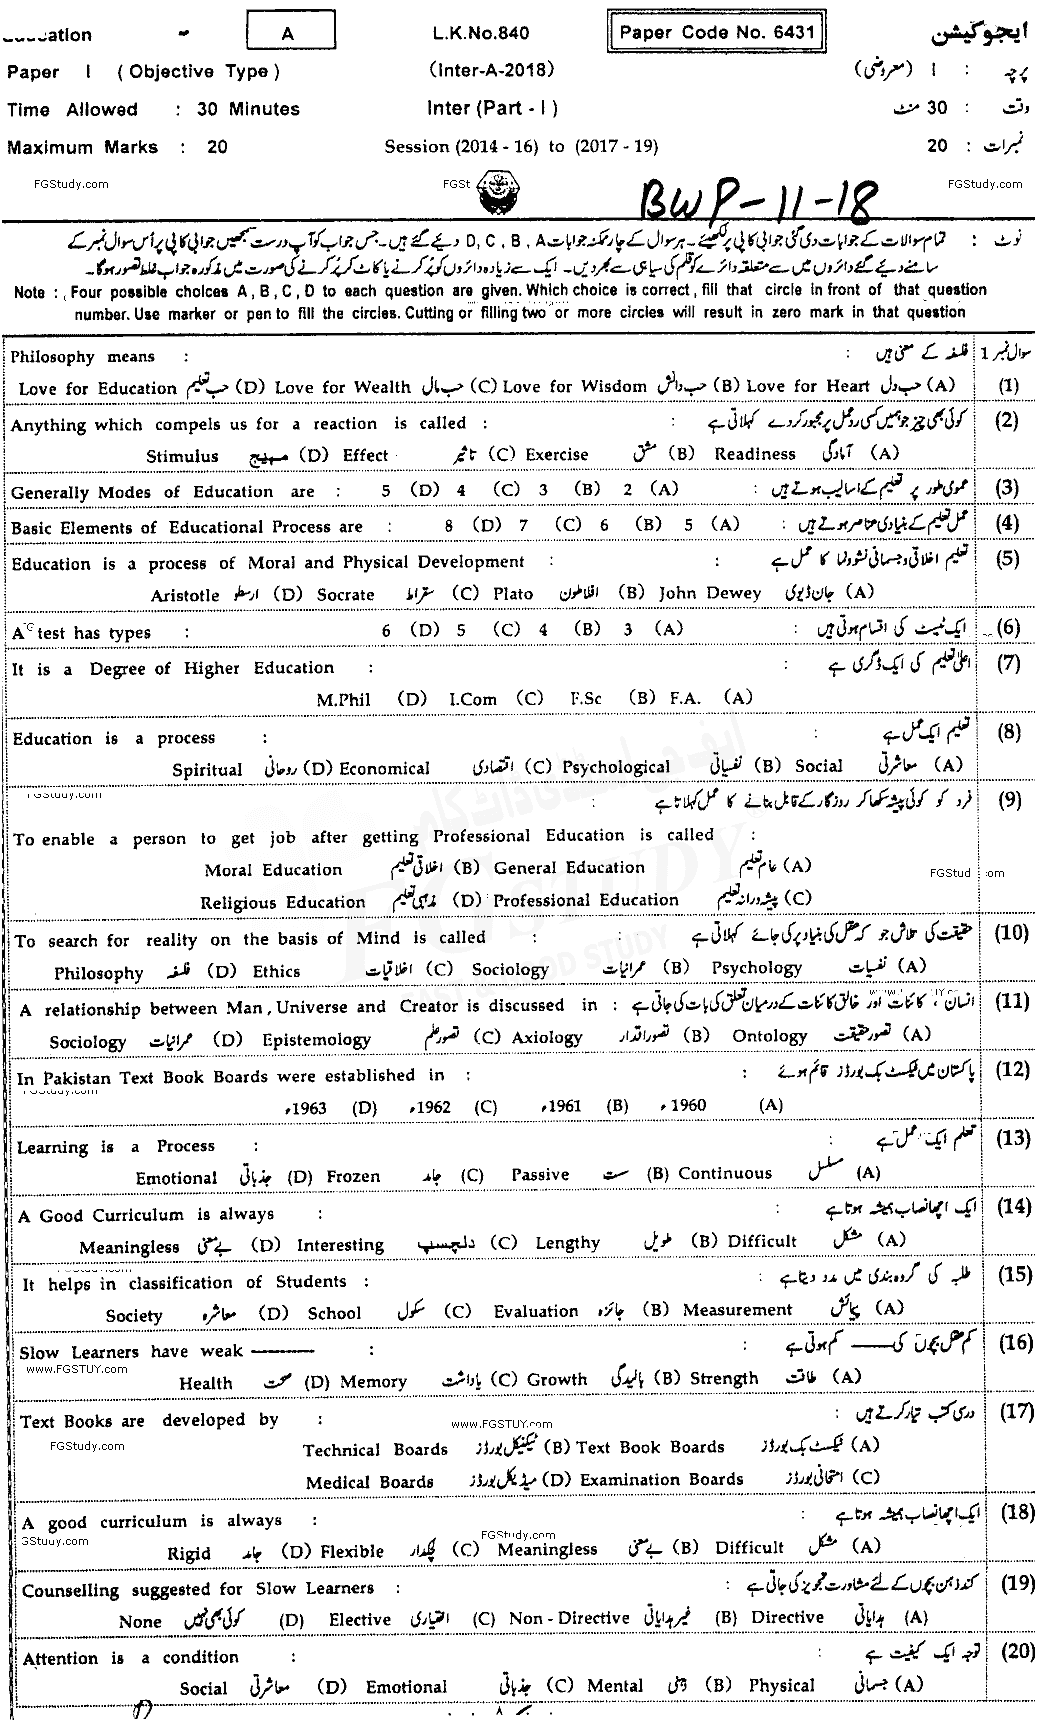 ucation - A L.K.No.840 Paper Code No. 6431 ایجوکیشن
Paper I ( Objective Type ) (Inter-A-2018) پرچہ : I (معروضی)
Time Allowed : 30 Minutes Inter (Part - I ) وقت : 30 منٹ
Maximum Marks : 20 Session (2014 - 16) to (2017 - 19) نمبرات : 20
FGStudy.com FGSt FGStudy.com
BWP-11-18
نوٹ : تمام سوالات کے جوابات دی گئی جوابی کاپی پر لکھیئے۔ ہر سوال کے چار ممکنہ جوابات D, C, B, A دیئے گئے ہیں۔ جس جواب کو آپ درست سمجھیں جوابی کاپی پر اُس سوال نمبر کے
سامنے دیئے گئے دائروں میں سے متعلقہ دائرے کو قلم کی سیاہی سے بھر دیں۔ ایک سے زیادہ دائروں کو پُر کرنے یا کاٹ کر پُر کرنے کی صورت میں مذکورہ جواب غلط تصور ہو گا۔
Note : Four possible choices A, B, C, D to each question are given. Which choice is correct, fill that circle in front of that question
number. Use marker or pen to fill the circles. Cutting or filling two or more circles will result in zero mark in that question
Philosophy means : فلسفہ کے معنی ہیں : سوال نمبر 1
Love for Education حب تعلیم (D) Love for Wealth حب مال (C) Love for Wisdom حب دانش (B) Love for Heart حب دل (A) (1)
Anything which compels us for a reaction is called : کوئی بھی چیز جو ہمیں کسی ردعمل پر مجبور کر دے کہلاتی ہے : (2)
Stimulus مہیج (D) Effect تاثیر (C) Exercise مشق (B) Readiness آمادگی (A)
Generally Modes of Education are : 5 (D) 4 (C) 3 (B) 2 (A) عمومی طور پر تعلیم کے اسالیب ہوتے ہیں : (3)
Basic Elements of Educational Process are : 8 (D) 7 (C) 6 (B) 5 (A) عمل تعلیم کے بنیادی عناصر ہوتے ہیں : (4)
Education is a process of Moral and Physical Development : تعلیم اخلاقی و جسمانی نشوونما کا عمل ہے : (5)
Aristotle ارسطو (D) Socrate سقراط (C) Plato افلاطون (B) John Dewey جان ڈیوی (A)
A test has types : 6 (D) 5 (C) 4 (B) 3 (A) ایک ٹیسٹ کی اقسام ہوتی ہیں : (6)
It is a Degree of Higher Education : اعلیٰ تعلیم کی ایک ڈگری ہے : (7)
M.Phil (D) I.Com (C) F.Sc (B) F.A. (A)
Education is a process : تعلیم ایک عمل ہے : (8)
Spiritual روحانی (D) Economical اقتصادی (C) Psychological نفسیاتی (B) Social معاشرتی (A)
FGStudy.com فرد کو کوئی پیشہ سکھا کر روزگار کے قابل بنانے کا عمل کہلاتا ہے : (9)
To enable a person to get job after getting Professional Education is called :
Moral Education اخلاقی تعلیم (B) General Education عام تعلیم (A) FGStud om
Religious Education مذہبی تعلیم (D) Professional Education پیشہ ورانہ تعلیم (C)
To search for reality on the basis of Mind is called : حقیقت کی تلاش جو کہ عقل کی بنیاد پر کی جائے کہلاتی ہے : (10)
Philosophy فلسفہ (D) Ethics اخلاقیات (C) Sociology عمرانیات (B) Psychology نفسیات (A)
A relationship between Man, Universe and Creator is discussed in : انسان ، کائنات اور خالق کائنات کے درمیان تعلق کی بات کی جاتی ہے (11)
Sociology عمرانیات (D) Epistemology تصور علم (C) Axiology تصور اقدار (B) Ontology تصور حقیقت (A)
In Pakistan Text Book Boards were established in : پاکستان میں ٹیکسٹ بک بورڈز قائم ہوئے : (12)
FGStudy.com 1963ء (D) 1962ء (C) 1961ء (B) 1960ء (A)
Learning is a Process : تعلم ایک عمل ہے : (13)
Emotional جذباتی (D) Frozen جامد (C) Passive ست (B) Continuous مسلسل (A)
A Good Curriculum is always : ایک اچھا نصاب ہمیشہ ہوتا ہے : (14)
Meaningless بے معنی (D) Interesting دلچسپ (C) Lengthy طویل (B) Difficult مشکل (A)
It helps in classification of Students : طلبہ کی گروہ بندی میں مدد دیتا ہے : (15)
Society معاشرہ (D) School سکول (C) Evaluation جائزہ (B) Measurement پیمائش (A)
Slow Learners have weak ——— : کم عقل بچوں کی —— کم ہوتی ہے : (16)
www.FGSTUY.com
Health صحت (D) Memory یاداشت (C) Growth بالیدگی (B) Strength طاقت (A)
Text Books are developed by : درسی کتب تیار کرتے ہیں : (17)
www.FGSTUY.com
FGStudy.com Technical Boards ٹیکنیکل بورڈز (B) Text Book Boards ٹیکسٹ بک بورڈز (A)
Medical Boards میڈیکل بورڈز (D) Examination Boards امتحانی بورڈز (C)
A good curriculum is always : ایک اچھا نصاب ہمیشہ ہوتا ہے : (18)
GStuuy.com FGStudy.com
Rigid جامد (D) Flexible لچکدار (C) Meaningless بے معنی (B) Difficult مشکل (A)
Counselling suggested for Slow Learners : کند ذہن بچوں کے لئے مشاورت تجویز کی جاتی ہے : (19)
None کوئی بھی نہیں (D) Elective اختیاری (C) Non - Directive غیر ہدایاتی (B) Directive ہدایاتی (A)
Attention is a condition : توجہ ایک کیفیت ہے : (20)
Social معاشرتی (D) Emotional جذباتی (C) Mental ذہنی (B) Physical جسمانی (A)